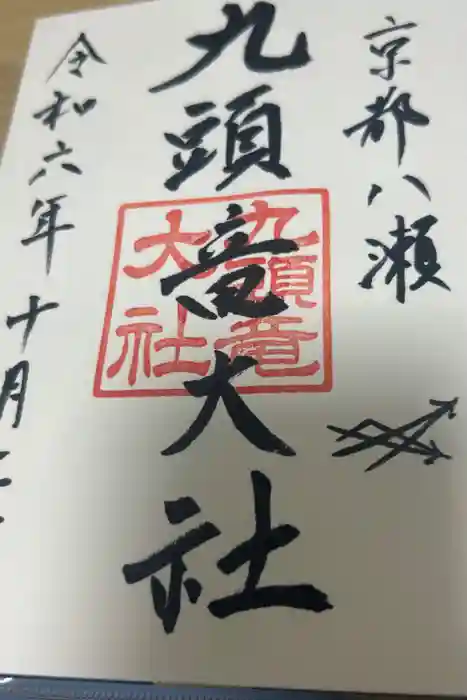 京都八瀬
九頭竜大社
九頭竜
大社
令和六年十月